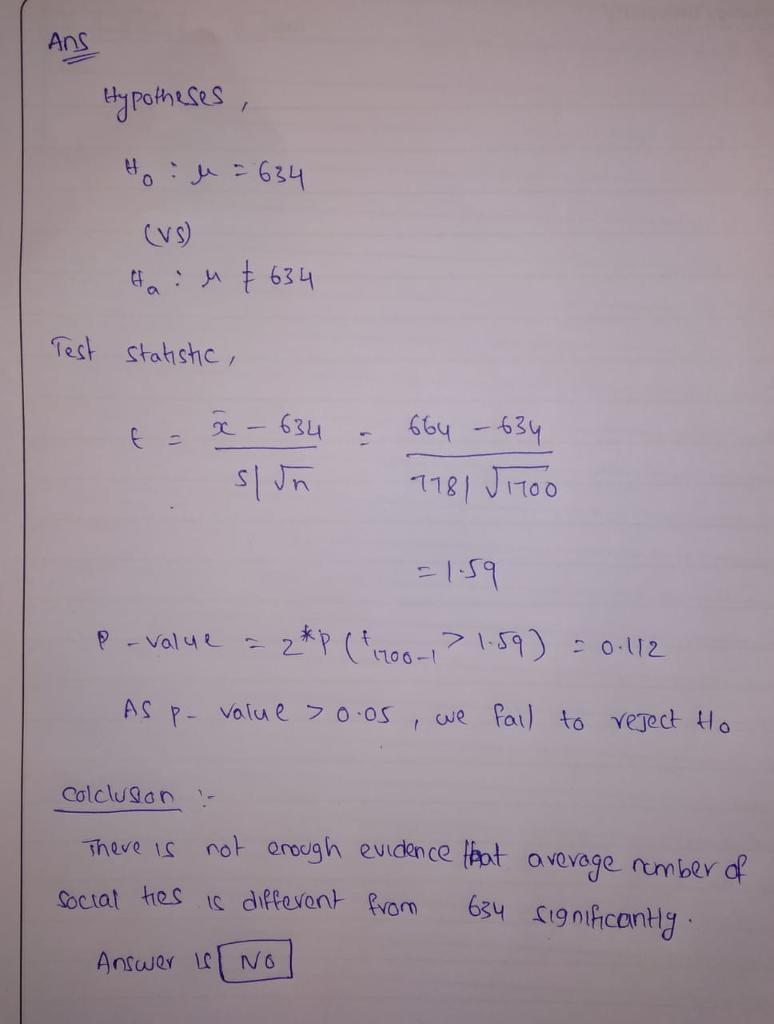 Ans
Hypotheses,
H₀ : μ = 634
(VS)
Hₐ : μ ≠ 634
Test statistic,
t = x̄ - 634 / s/√n = 664 - 634 / 778/√1700
= 1.59
P-value = 2*P(t₁₇₀₀₋₁ > 1.59) = 0.112
As p-value > 0.05, we fail to reject H₀
Colclusion :-
There is not enough evidence that average number of
social ties is different from 634 significantly.
Answer is NO